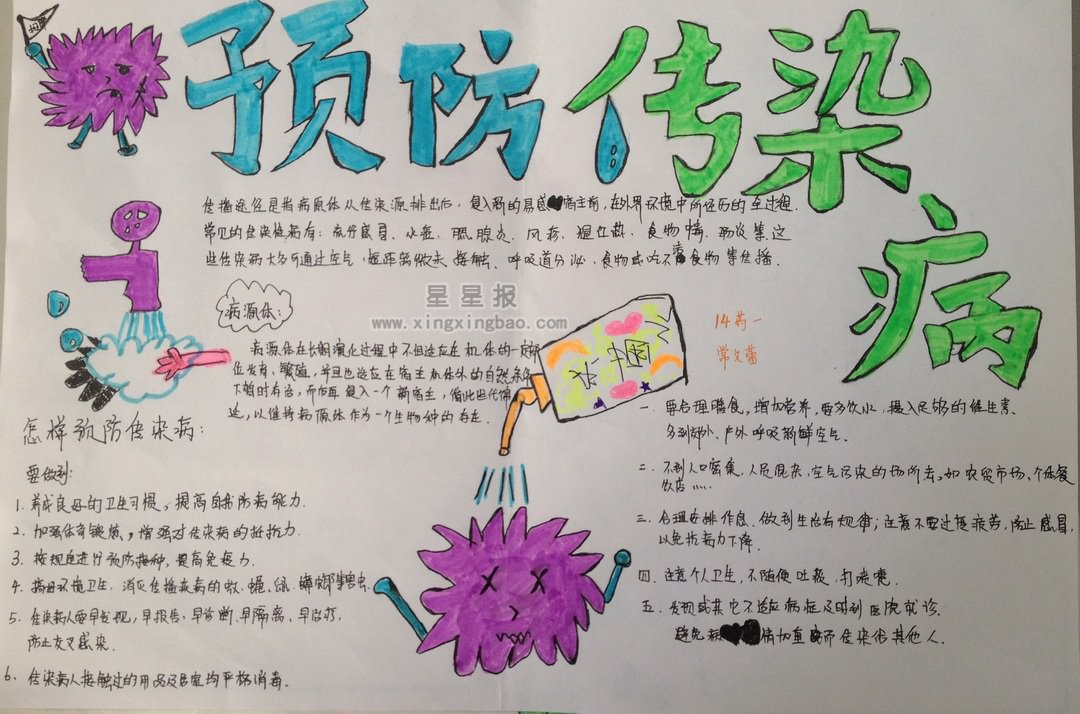 预防传染病
传播途径是指病原体从传染源排出后,侵入新的易感宿主前,在外界环境中所经历的全过程.
常见的传染病有:流行感冒、水痘、腮腺炎、风疹、猩红热、食物中毒、肠炎等.这
些传染病大多可通过空气,短距离飞沫,接触、呼吸道分泌,食物或吃不洁食物等传播.
星星报
www.xingxingbao.com
病源体:
病源体在长期演化过程中不但适应在机体的一定部
位发育、繁殖,并且也适应在宿主机体外的自然条件
下暂时存活,而后再侵入一个新宿主,循此世代绵
延,以维持病原体作为一个生物种的存在.
14药一
怎样预防传染病:
要做到:
1.养成良好的卫生习惯,提高自我防病能力.
2.加强体育锻炼,增强对传染病的抵抗力.
3.按规定进行预防接种,提高免疫力.
4.搞好环境卫生,消灭传播疾病的蚊、蝇、鼠、蟑螂等害虫.
5.传染病人要早发现,早报告,早诊断,早隔离,早治疗,
防止交叉感染.
6.传染病人接触过的用品及居室均严格消毒.
一.要合理膳食,增加营养,要多饮水,摄入足够的维生素.
多到郊外、户外呼吸新鲜空气.
二.不到人口密集,人员混杂,空气污染的场所去,如农贸市场、个体餐
饮店……
三.合理安排作息,做到生活有规律;注意不要过度疲劳,防止感冒,
以免抗病力下降.
四.注意个人卫生,不随便吐痰,打喷嚏.
五.发现或其它不适应病症及时到医院就诊.
避免病情加重而传染给其他人.